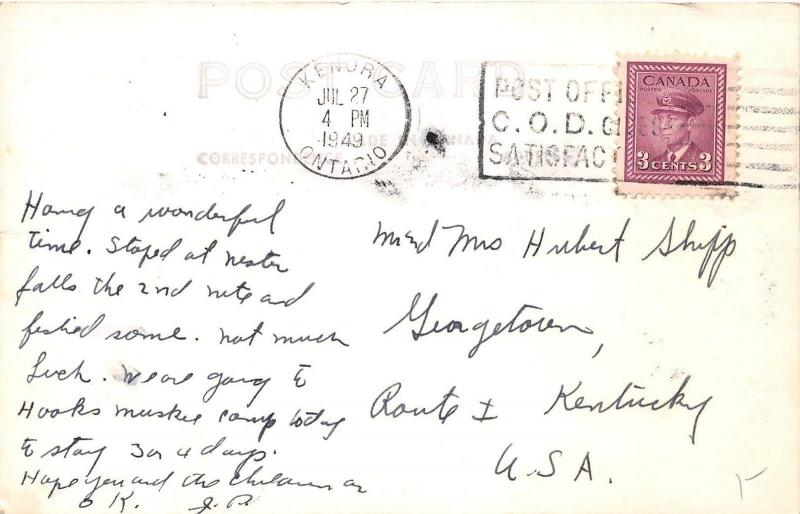 POST CARD
KENORA
JUL 27
4 PM
1949
ONTARIO
POST OFFI
C.O.D.
SATISFAC
CANADA
POSTES POSTAGE
3 CENTS 3
CORRESPON
Having a wonderful
time. Stoped at nester
falls the 2nd nite and
fished some. not much
Luck. We are going to
Hooks muskie camp today
to stay 3 or 4 days.
Hope you and the children are
O K. J.P.
Mr and Mrs Hubert Shipp
Georgetown,
Route 1 Kentucky
U.S.A.